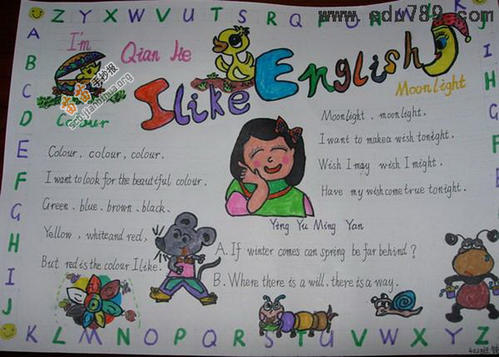 Z Y X W V U T S R Q
I'm Qian Jie
I like English
Colour
Moonlight
Colour, colour, colour.
I want to look for the beautiful colour.
Green, blue, brown, black.
Yellow, white and red,
But red is the colour I like.
Moonlight, moonlight.
I want to make a wish tonight.
Wish I may wish I might.
Have my wish come true tonight.
Ying Yu Ming Yan
A. If winter comes can spring be far behind?
B. Where there is a will, there is a way.
A
B
C
D
E
F
G
H
I
J
K L M N O P Q R S T U V W X Y Z